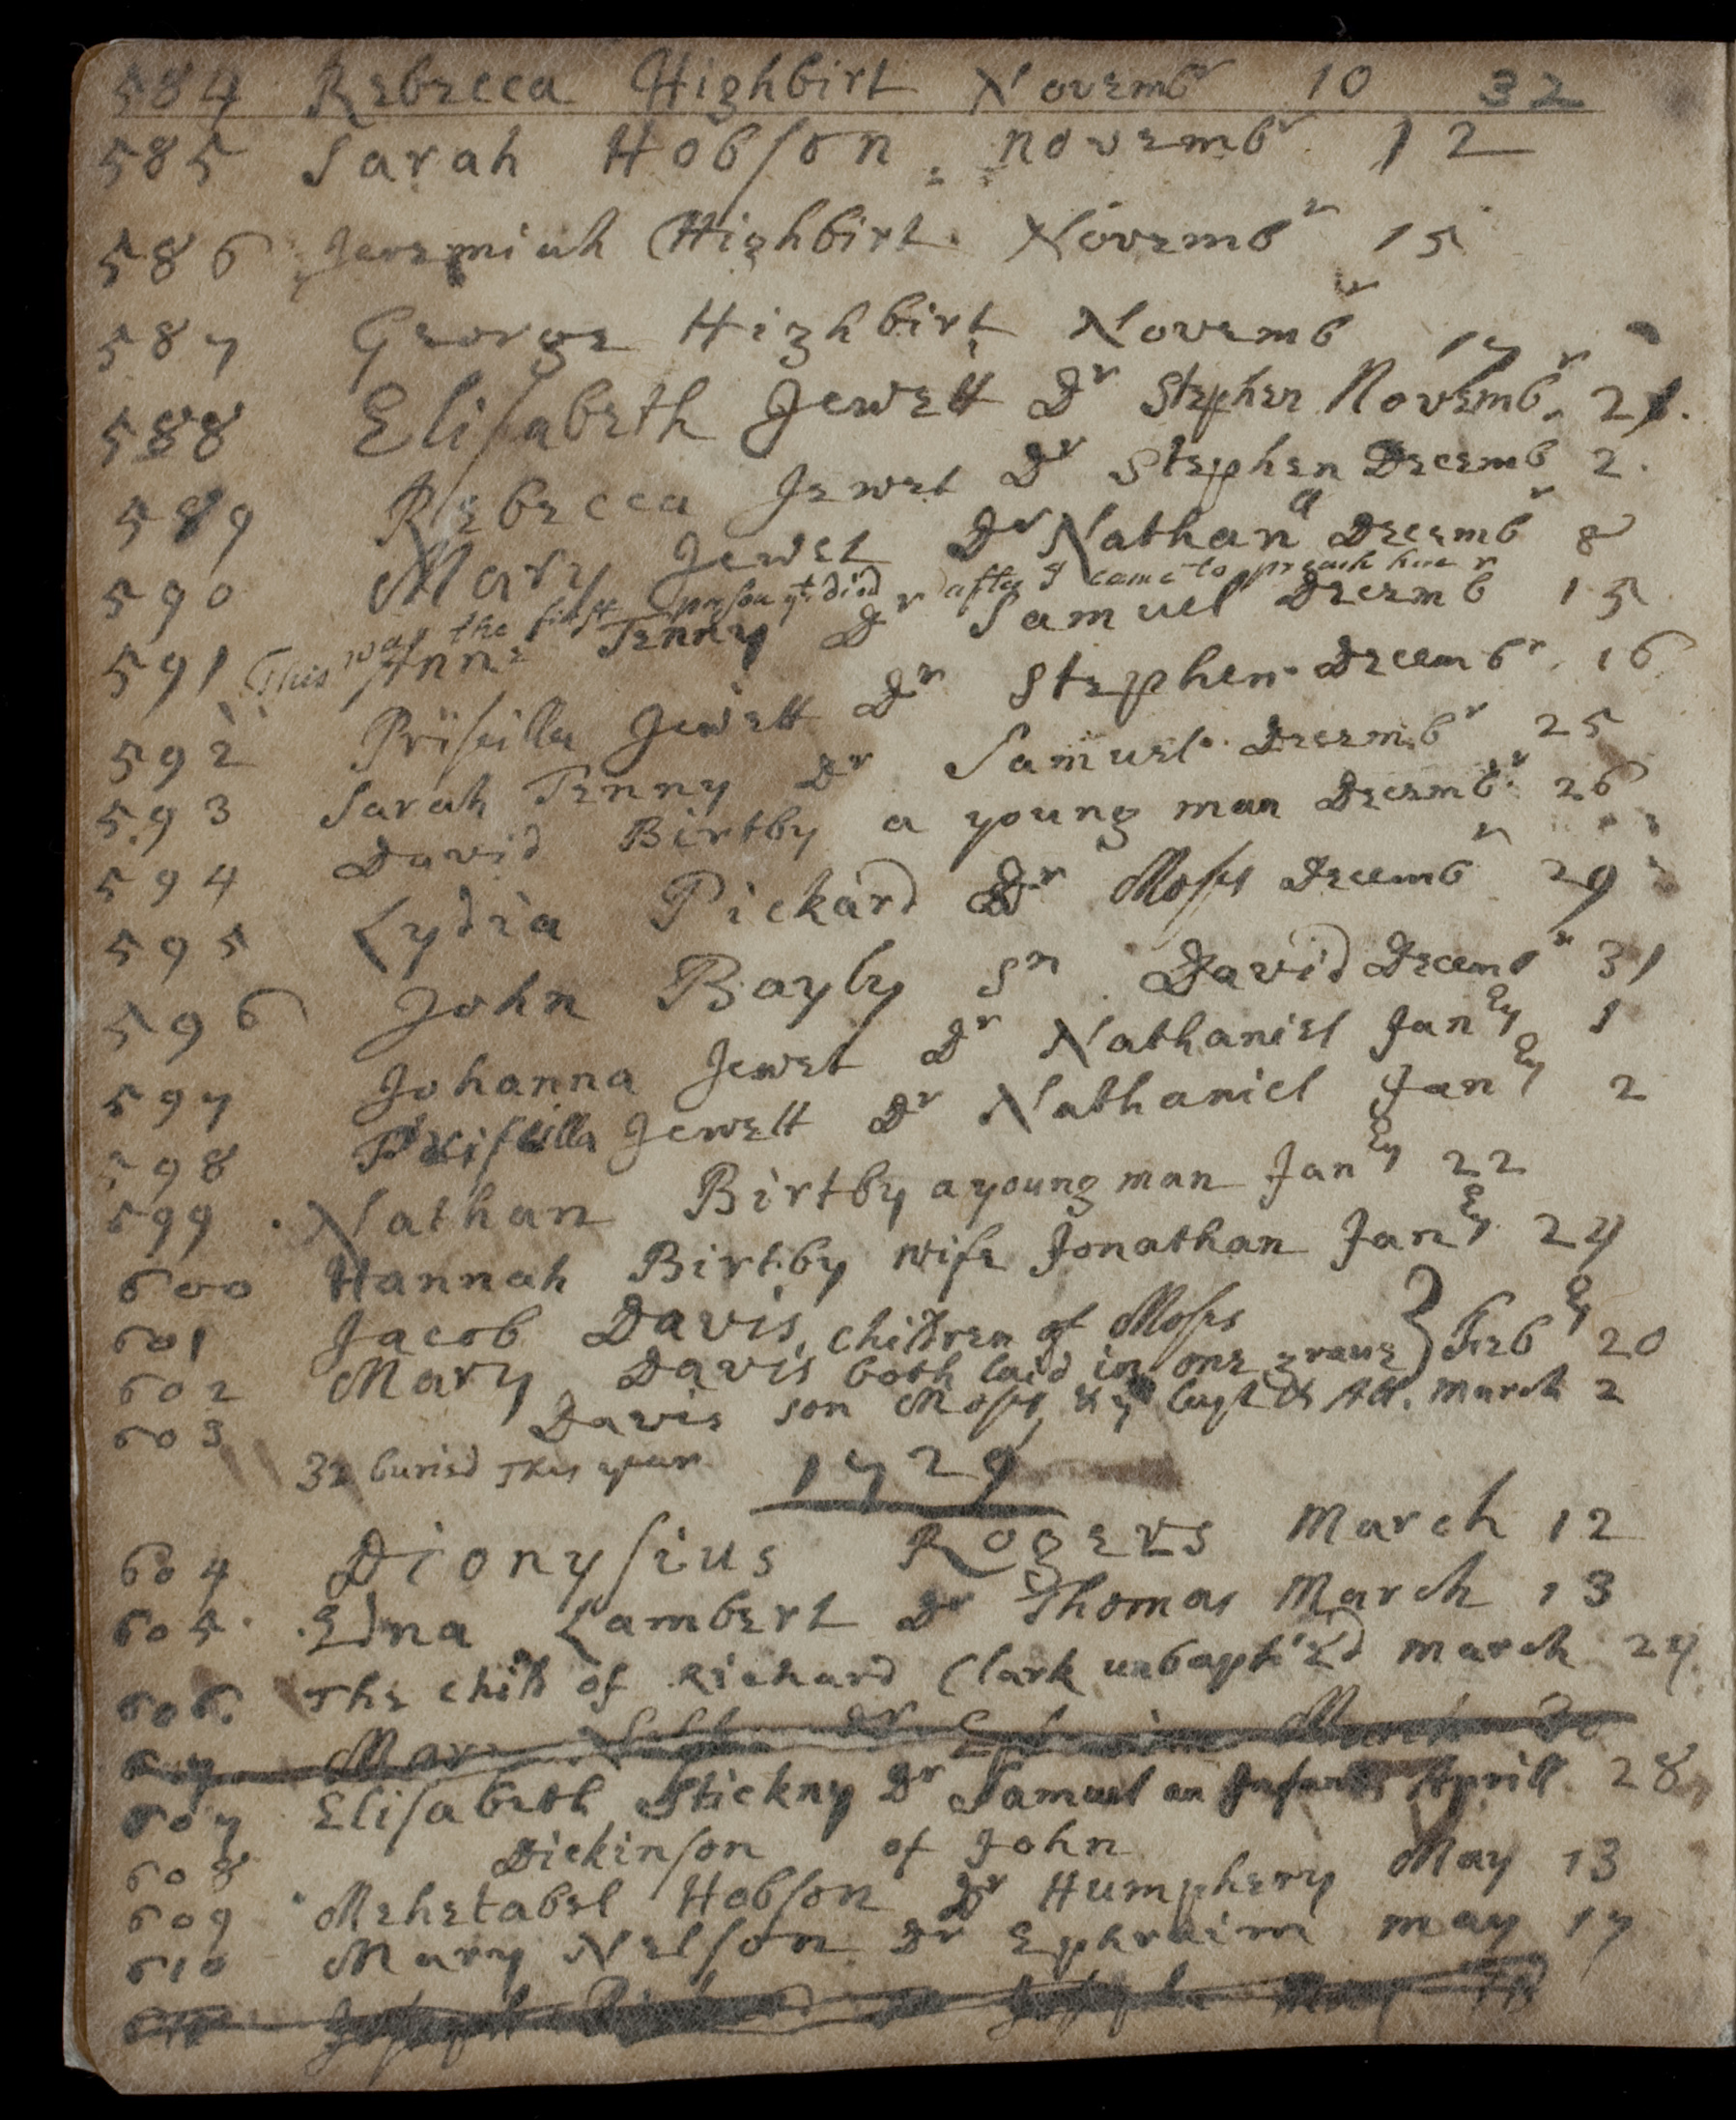 584 Rebecca Highbirt Novembr 10 32
585 Sarah Hobson novembr 12
586 Jeremiah Highbirt Novembr 15
587 George Highbirt Novembr 17
588 Elisabeth Jewett Dr Stephen Novembr 21.
589 Rebecca Jewet Dr Stephen Decembr 2.
590 Mary Jewet Dr Nathanll Decembr 8
This was the first person yt died after I came to preach here
591 Anne Tenny Dr Samuel Decembr 15
592 Prissilla Jewett Dr Stephen Decembr 16
593 Sarah Tenny Dr Samuel Decembr 25
594 David Birtby a young man Decembr 26
595 Lydia Pickard Dr Moses Decembr 29
596 John Bayly Sn David Decembr 31
597 Johanna Jewet Dr Nathaniel Janey 1
598 Prissilla Jewett Dr Nathaniel Janey 2
599 Nathan Birtby a young man Janey 22
600 Hannah Birtby wife Jonathan Janey 24
601 Jacob Davis, children of Moses
602 Mary Davis both laid in one grave } Febey 20
603 Davis son Moses, & ye last March 2
32 buried This year 1729
604 Dionysius Rogers March 12
605 Edna Lambert Dr Thomas March 13
606. The child of Richard Clark unbaptized march 24
607 Mary Dr March
607 Elisabeth Stickny Dr Samuel an Infant Aprill 28
608 Dickinson of John
609 Mehetabel Hobson Dr Humphery May 13
610 Mary Nelson Dr Ephraim may 17
Joseph Joseph May